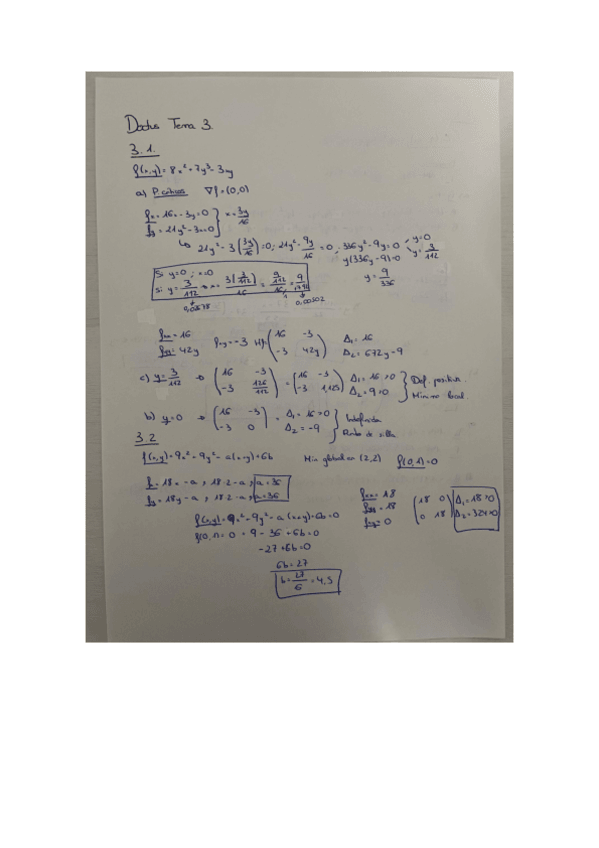 3.1.
f(x,y)= 8x²+7y³-3xy
a) P. críticos ∇f=(0,0)
fx= 16x-3y=0 } x=3y/16
fy= 21y²-3x=0
↳ 21y²-3(3y/16)=0; 21y²-9y/16=0; 336y²-9y=0 y=0
y(336y-9)=0
y=9/336
Si y=0; x=0
Si y=3/112
16
fxx=16 fxy=-3 Hf=(16 -3
fyy=42y -3 42y) Δ1=16
Δ2=672y-9
c) y=3/112 → (16 -3 -3 126/112) = (16 -3 -3 1,125) Δ1=16>0 Δ2=9>0 } Def. positiva.
Mínimo local.
b) y=0 → (16 -3 -3 0) = Δ1=16>0 Δ2=-9 } Indefinida
3.2
f(x,y)=9x²+9y²-a(x+y)+6b Min global en (2,2) f(0,1)=0
fx=18x-a, 18·2-a, a=36
fy=18y-a, 18·2-a, a=36
fxx=18
fyy=18
fxy=0
(18 0 0 18) Δ1=18>0 Δ2=324>0
f(x,y)=9x²-9y²-a(x+y)+6b=0
f(0,1)=0 = 9-36+6b=0
-27+6b=0
6b=27
b=27/6=4,5